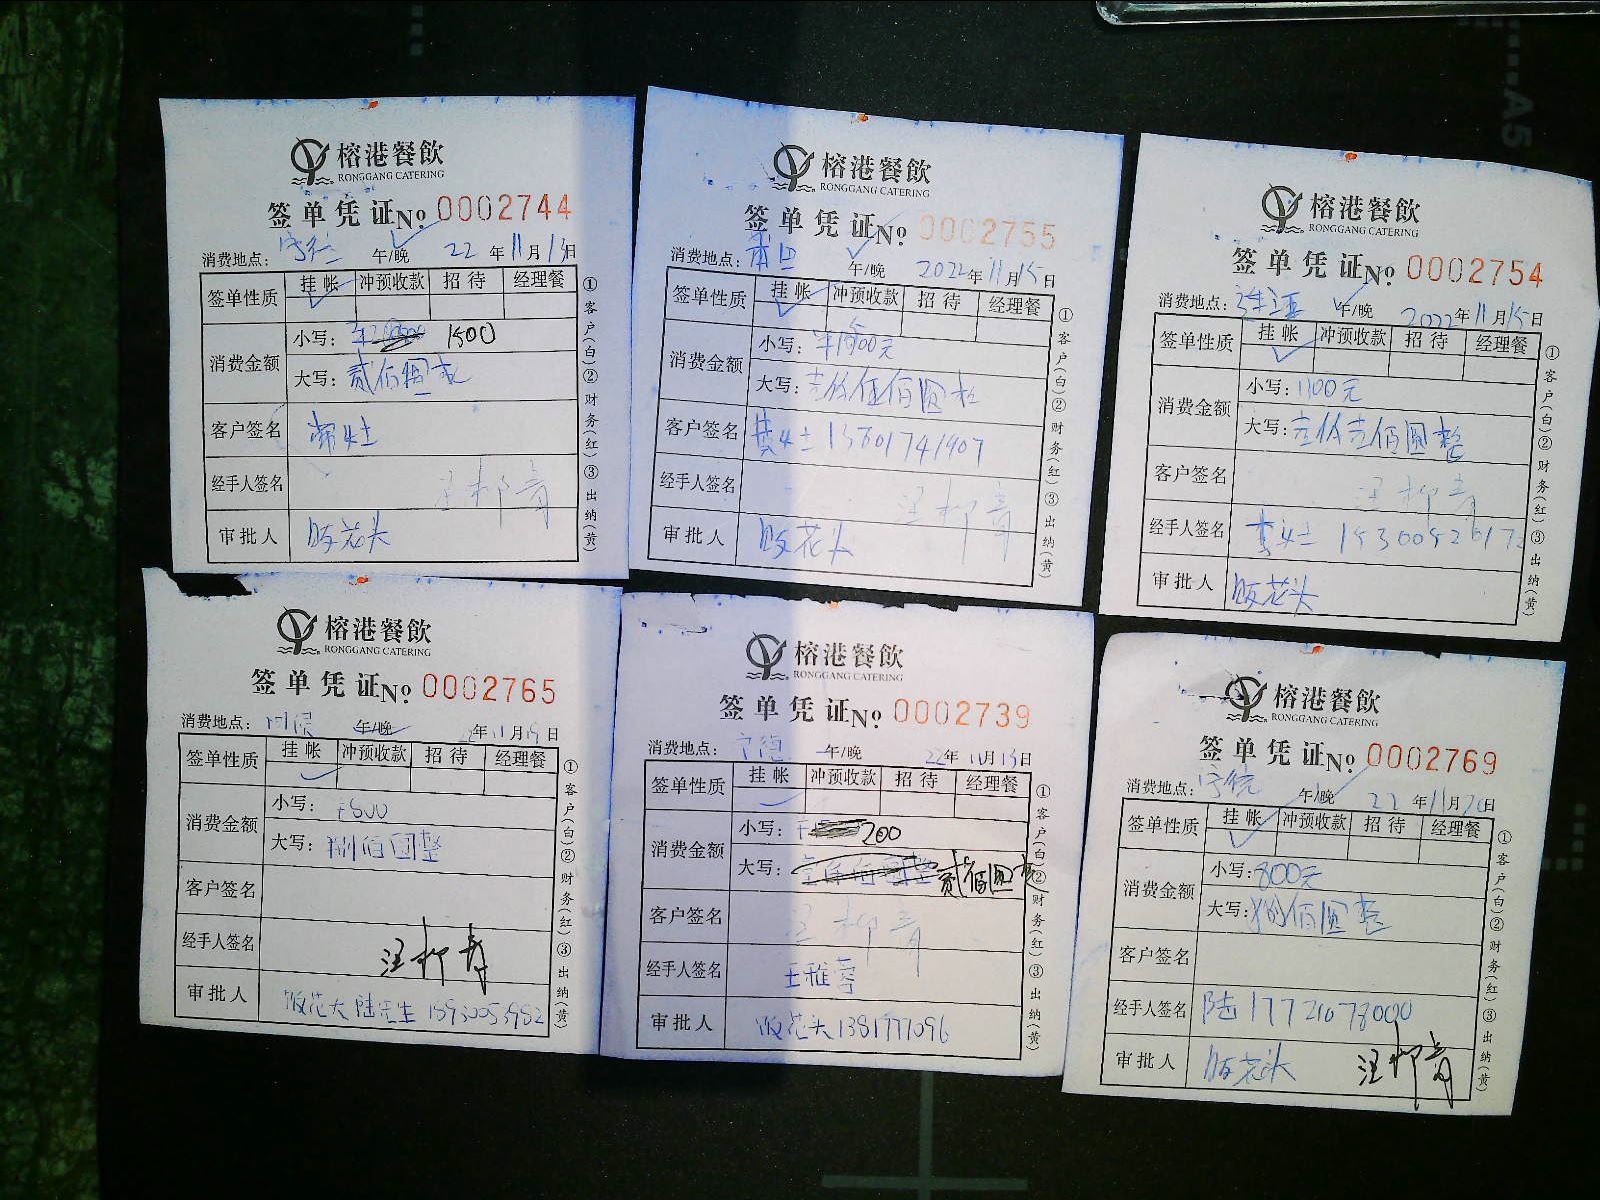 榕港餐飲
RONGGANG CATERING
签单凭证No 0002744
消费地点： 午/晚 22年11月13日
签单性质 挂帐 冲预收款 招待 经理餐
消费金额 小写： 1500
大写：贰佰圆
客户签名 女士
经手人签名 汪柳青
审批人 饭花头
①客户(白)②财务(红)③出纳(黄)
榕港餐飲
RONGGANG CATERING
签单凭证No 0002755
消费地点：莆田 午/晚 2022年11月15日
签单性质 挂帐 冲预收款 招待 经理餐
消费金额 小写：¥1500元
大写：壹仟伍佰圆
客户签名 女士 13801741907
经手人签名 汪柳青
审批人 饭花头
①客户(白)②财务(红)③出纳(黄)
榕港餐飲
RONGGANG CATERING
签单凭证No 0002754
消费地点： 午/晚 2022年11月15日
签单性质 挂帐 冲预收款 招待 经理餐
消费金额 小写：1100元
大写：壹仟壹佰圆整
客户签名 汪柳青
经手人签名 李女士
审批人 饭花头
①客户(白)②财务(红)③出纳(黄)
榕港餐飲
RONGGANG CATERING
签单凭证No 0002765
消费地点： 午/晚 年11月19日
签单性质 挂帐 冲预收款 招待 经理餐
消费金额 小写：
大写：捌佰圆整
客户签名
经手人签名 汪柳青
审批人 饭花头 陆先生
①客户(白)②财务(红)③出纳(黄)
榕港餐飲
RONGGANG CATERING
签单凭证No 0002739
消费地点：宁德 午/晚 22年11月13日
签单性质 挂帐 冲预收款 招待 经理餐
消费金额 小写：200
大写：贰佰圆
客户签名 汪柳青
经手人签名 王雅蓉
审批人 饭花头 1381777096
①客户(白)②财务(红)③出纳(黄)
榕港餐飲
RONGGANG CATERING
签单凭证No 0002769
消费地点： 午/晚 22年11月20日
签单性质 挂帐 冲预收款 招待 经理餐
消费金额 小写：800元
大写：捌佰圆整
客户签名
经手人签名 陆 17721078000
审批人 饭花头 汪柳青
①客户(白)②财务(红)③出纳(黄)